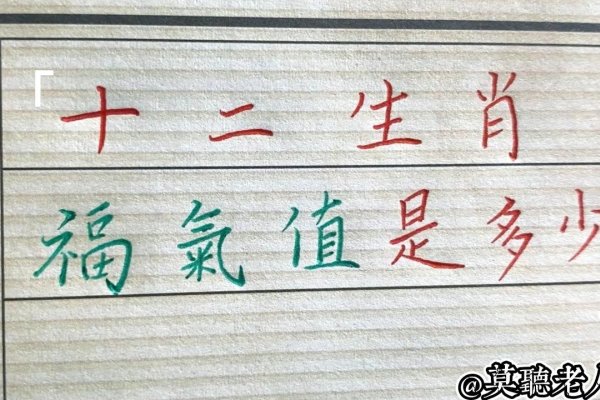 「十二生肖
福氣值是多少
@莫聽老人